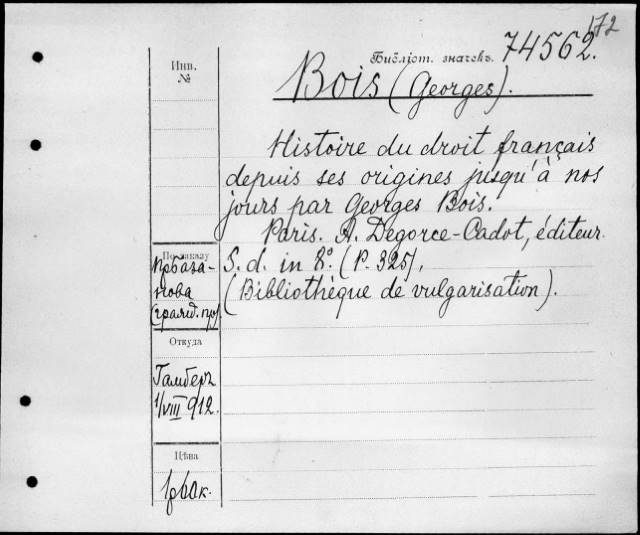 172
Библіот. значекъ. 74562.
Инв.
№
Bois (Georges).
Histoire du droit français
depuis ses origines jusqu'à nos
jours par Georges Bois.
Paris. A. Degorce-Cadot, éditeur.
S. d. in 8º. (P. 325),
(Bibliothèque de vulgarisation).
По заказу
(гражд. пр.)
Откуда
Гамберъ
1/VIII 912.
Цѣна
1р60к.